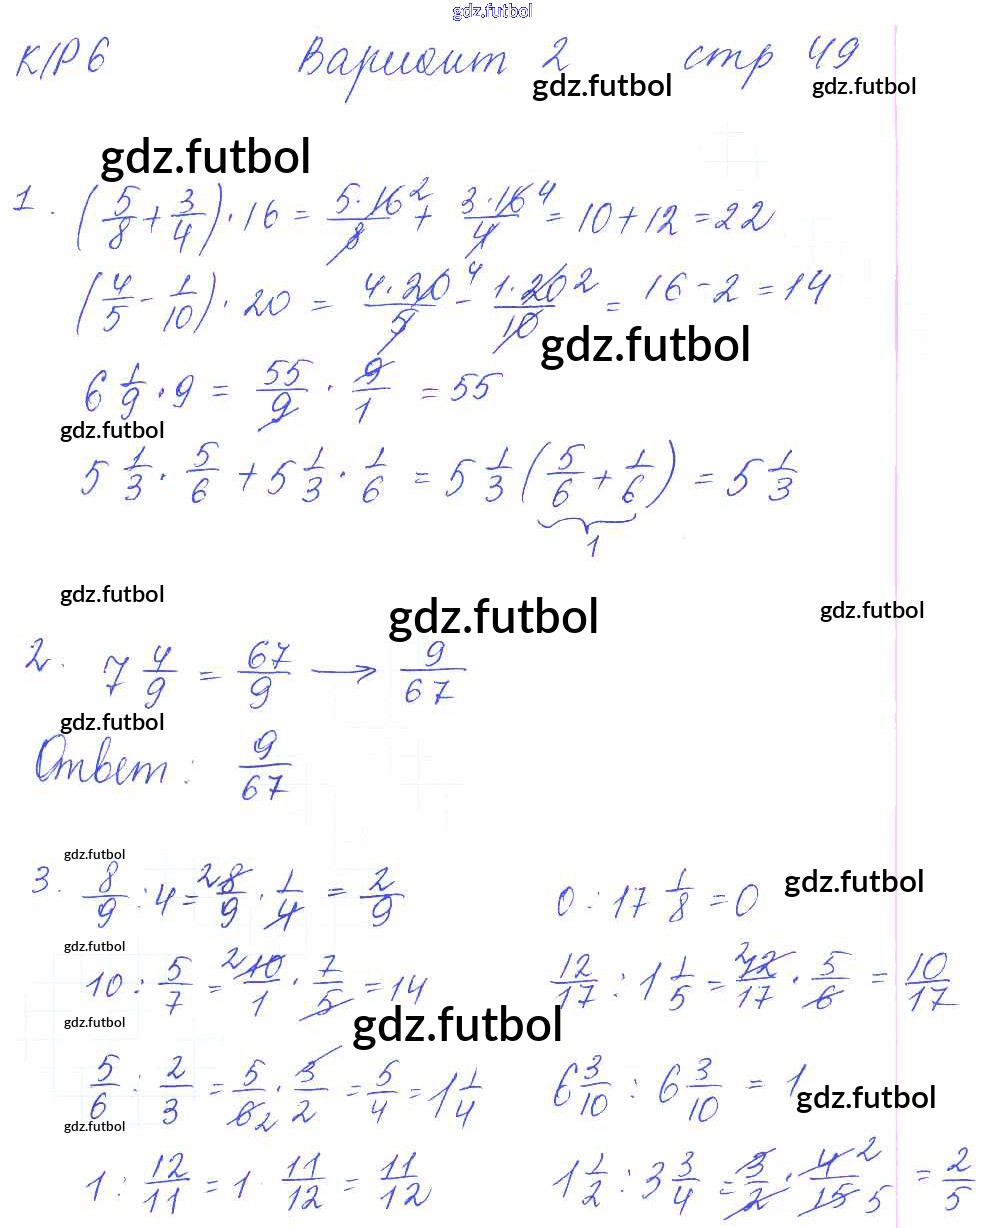 gdz.futbol
К/Р 6 Вариант 2 стр 49
gdz.futbol gdz.futbol
gdz.futbol
1. (5/8 + 3/4) · 16 = 5·16²/8 + 3·16⁴/4 = 10 + 12 = 22
(4/5 - 1/10) · 20 = 4·20⁴/5 - 1·20²/10 = 16 - 2 = 14
gdz.futbol
6 1/9 · 9 = 55/9 · 9/1 = 55
gdz.futbol
5 1/3 · 5/6 + 5 1/3 · 1/6 = 5 1/3 (5/6 + 1/6) = 5 1/3
1
gdz.futbol gdz.futbol gdz.futbol
2. 7 4/9 = 67/9 → 9/67
gdz.futbol
Ответ: 9/67
gdz.futbol
3. 8/9 : 4 = ²8/9 · 1/4 = 2/9 0 : 17 1/8 = 0
gdz.futbol
gdz.futbol
10 : 5/7 = ²10/1 · 7/5 = 14 12/17 : 1 1/5 = ²12/17 · 5/6 = 10/17
gdz.futbol gdz.futbol
5/6 : 2/3 = 5/6₂ · 3/2 = 5/4 = 1 1/4 6 3/10 : 6 3/10 = 1
gdz.futbol
gdz.futbol
1 : 12/11 = 1 · 11/12 = 11/12 1 1/2 : 3 3/4 = 3/2 · 4²/15₅ = 2/5